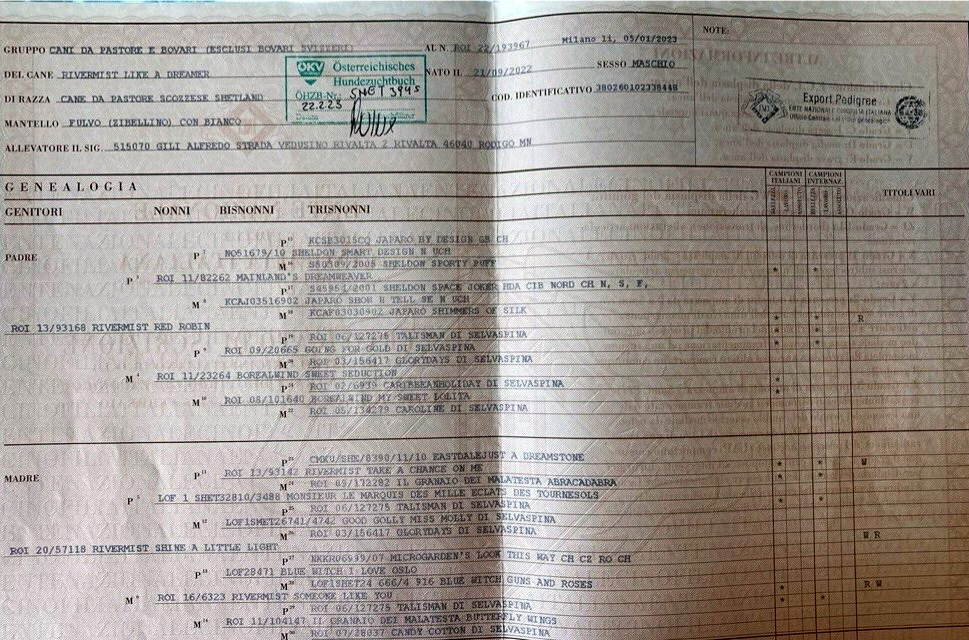 GRUPPO CANI DA PASTORE E BOVARI (ESCLUSI BOVARI SVIZZERI) AL N. ROI 22/193967 Milano 11, 05/01/2023 NOTE:
DEL CANE RIVERMIST LIKE A DREAMER NATO IL 21/09/2022 SESSO MASCHIO
ÖKV Österreichisches
Hundezuchtbuch
ÖHZB-Nr.: SHET 3945
22.2.23
DI RAZZA CANE DA PASTORE SCOZZESE SHETLAND COD. IDENTIFICATIVO
Export Pedigree
MANTELLO FULVO (ZIBELLINO) CON BIANCO
ALLEVATORE IL SIG. 515070 GILI ALFREDO STRADA VEDUSINO RIVALTA 2 RIVALTA 46040 RODIGO MN
GENEALOGIA
CAMPIONI ITALIANI CAMPIONI INTERNAZ.
GENITORI NONNI BISNONNI TRISNONNI TITOLI VARI
P KCSB3015CQ JAPARO BY DESIGN GB CH
P NO51679/10 SHELDON SMART DESIGN N UCH
PADRE
M SHELDON SPORTY PUFF
P ROI 11/82262 MAINLAND'S DREAMWEAVER * *
P SHELDON SPACE JOKER HDA CIB NORD CH N, S, F,
M KCAJ03516902 JAPARO SHOW N TELL SE N UCH
M KCAF03030902 JAPARO SHIMMERS OF SILK
ROI 13/93168 RIVERMIST RED ROBIN * * R
P ROI 06/127275 TALISMAN DI SELVASPINA * *
P ROI 09/20665 GOING FOR GOLD DI SELVASPINA * *
M ROI 03/156417 GLORYDAYS DI SELVASPINA
M ROI 11/23264 BOREALWIND SWEET SEDUCTION
P ROI 02/6939 CARIBBEANHOLIDAY DI SELVASPINA *
M ROI 08/101640 BOREALWIND MY SWEET LOLITA *
M ROI 05/134279 CAROLINE DI SELVASPINA
P CMKU/SHE/8390/11/10 EASTDALEJUST A DREAMSTONE
P ROI 13/93142 RIVERMIST TAKE A CHANCE ON ME * * W
MADRE
M ROI 03/172282 IL GRANAIO DEI MALATESTA ABRACADABRA * *
P LOF 1 SHET32810/3488 MONSIEUR LE MARQUIS DES MILLE ECLATS DES TOURNESOLS
P ROI 06/127275 TALISMAN DI SELVASPINA * *
M LOF1SHET26741/4742 GOOD GOLLY MISS MOLLY DI SELVASPINA
M ROI 03/156417 GLORYDAYS DI SELVASPINA W R
ROI 20/57118 RIVERMIST SHINE A LITTLE LIGHT
P MICROGARDEN'S LOOK THIS WAY CH CZ RO CH
P LOF28471 BLUE WITCH I LOVE OSLO
M LOF1SHET24 666/4 926 BLUE WITCH GUNS AND ROSES R W
M ROI 16/6323 RIVERMIST SOMEONE LIKE YOU *
P ROI 06/127275 TALISMAN DI SELVASPINA * *
M ROI 11/104147 IL GRANAIO DEI MALATESTA BUTTERFLY WINGS
M ROI 07/28037 CANDY COTTON DI SELVASPINA